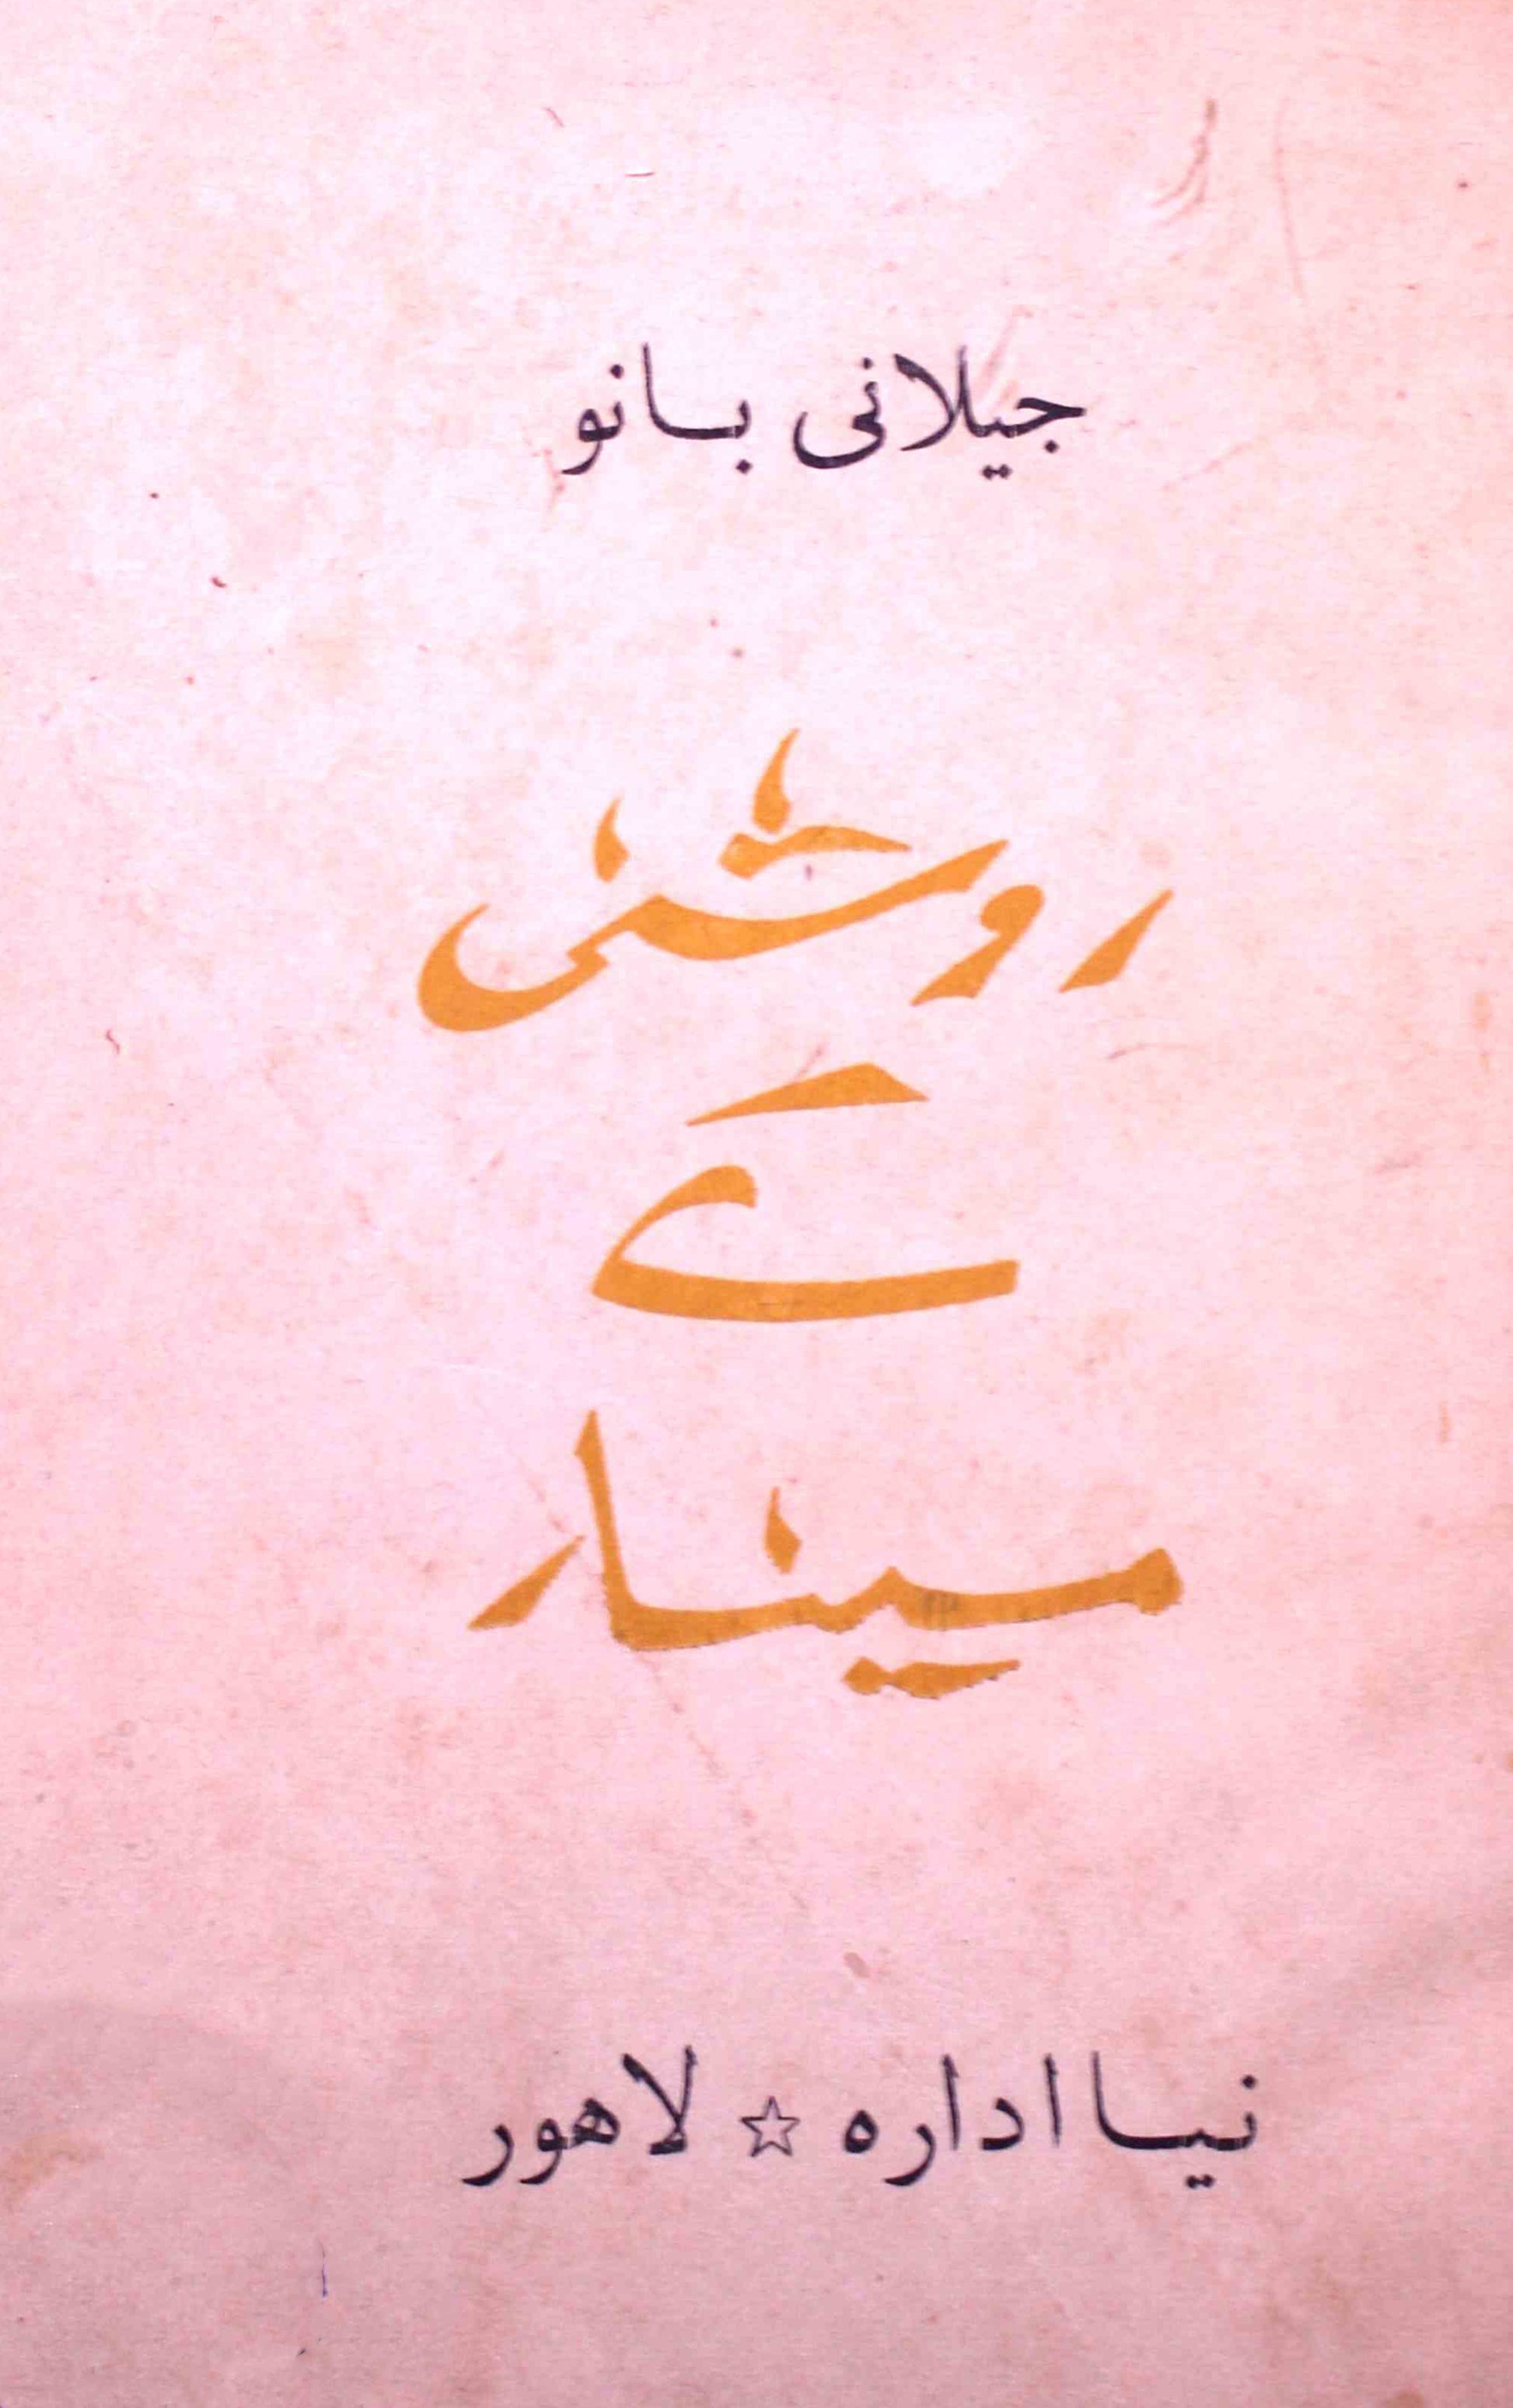 جیلانی بانو
روشنی
کے
مینار
نیا ادارہ ☆ لاہور